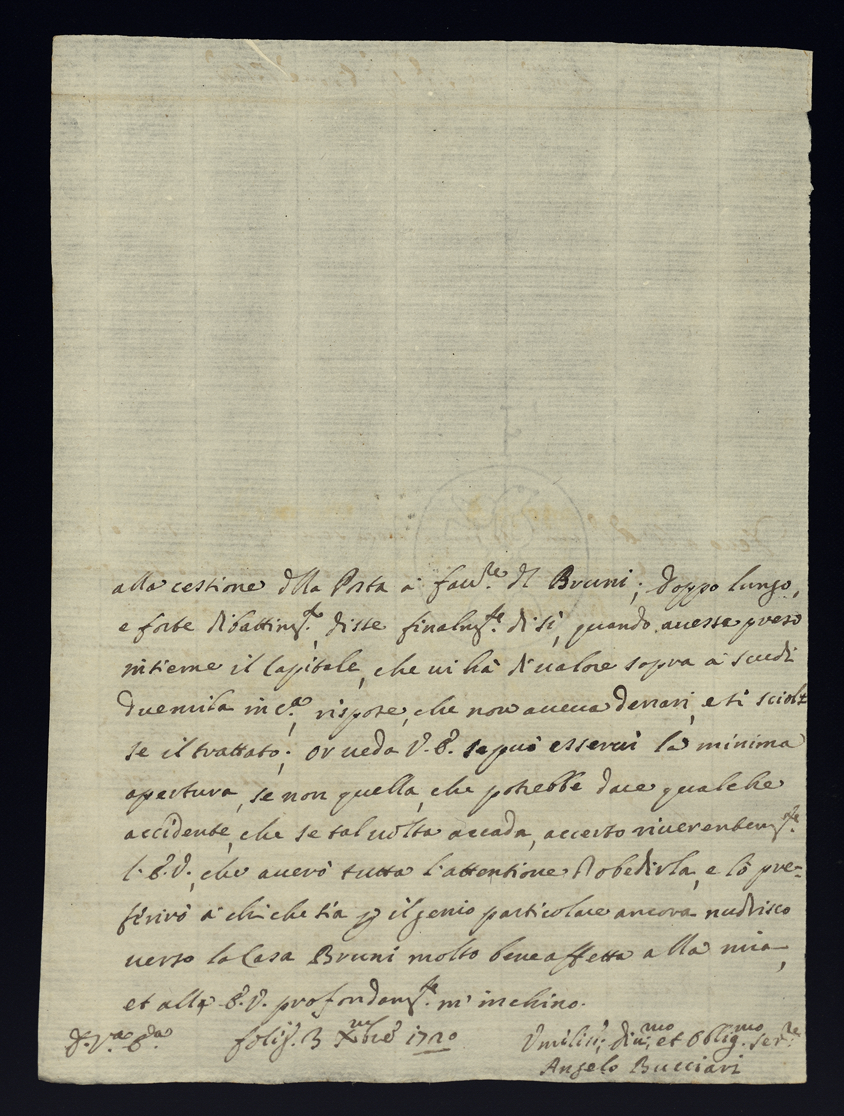 alla cessione dlla Posta à fau.re dl Bruni; doppo lungo,
e forte dibattim.to, disse finalm.te di sì, quando auesse preso
insieme il Capitale, che ui hà di ualore sopra à scudi
duemila in c.a, rispose, che non aueua denari, e si sciols
se il trattato; or ueda V. E. se può esserui la minima
apertura, se non quella, che potrebbe dare qualche
accidente, che se tal uolta accada, accerto riuerentem.te
l'E.V., che auerò tutta l'attentione d'obedirla, e lo pre=
ferirò à chi che sia p il genio particolare ancora nudrisco
uerso la Casa Bruni molto bene affetta alla mia,
et alla E.V. profondam.te m'inchino.
D. V.a E.za folig. 3 Xmbre 1720 Vmiliss. diu.mo et Oblig.mo Ser.re
Angelo Bucciari